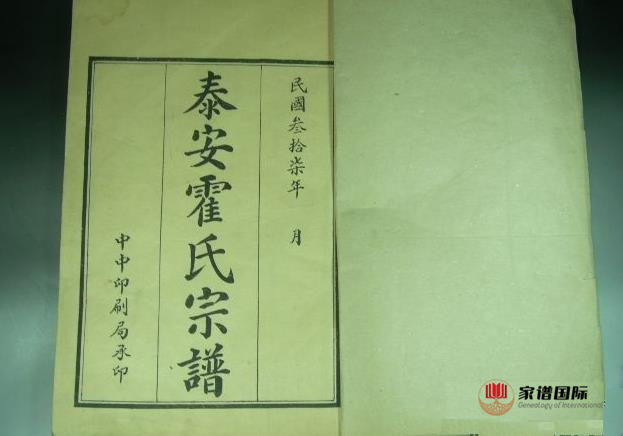 民國叁拾柒年 月
泰安霍氏宗譜
中中印刷局承印
家谱国际
Genealogy of International